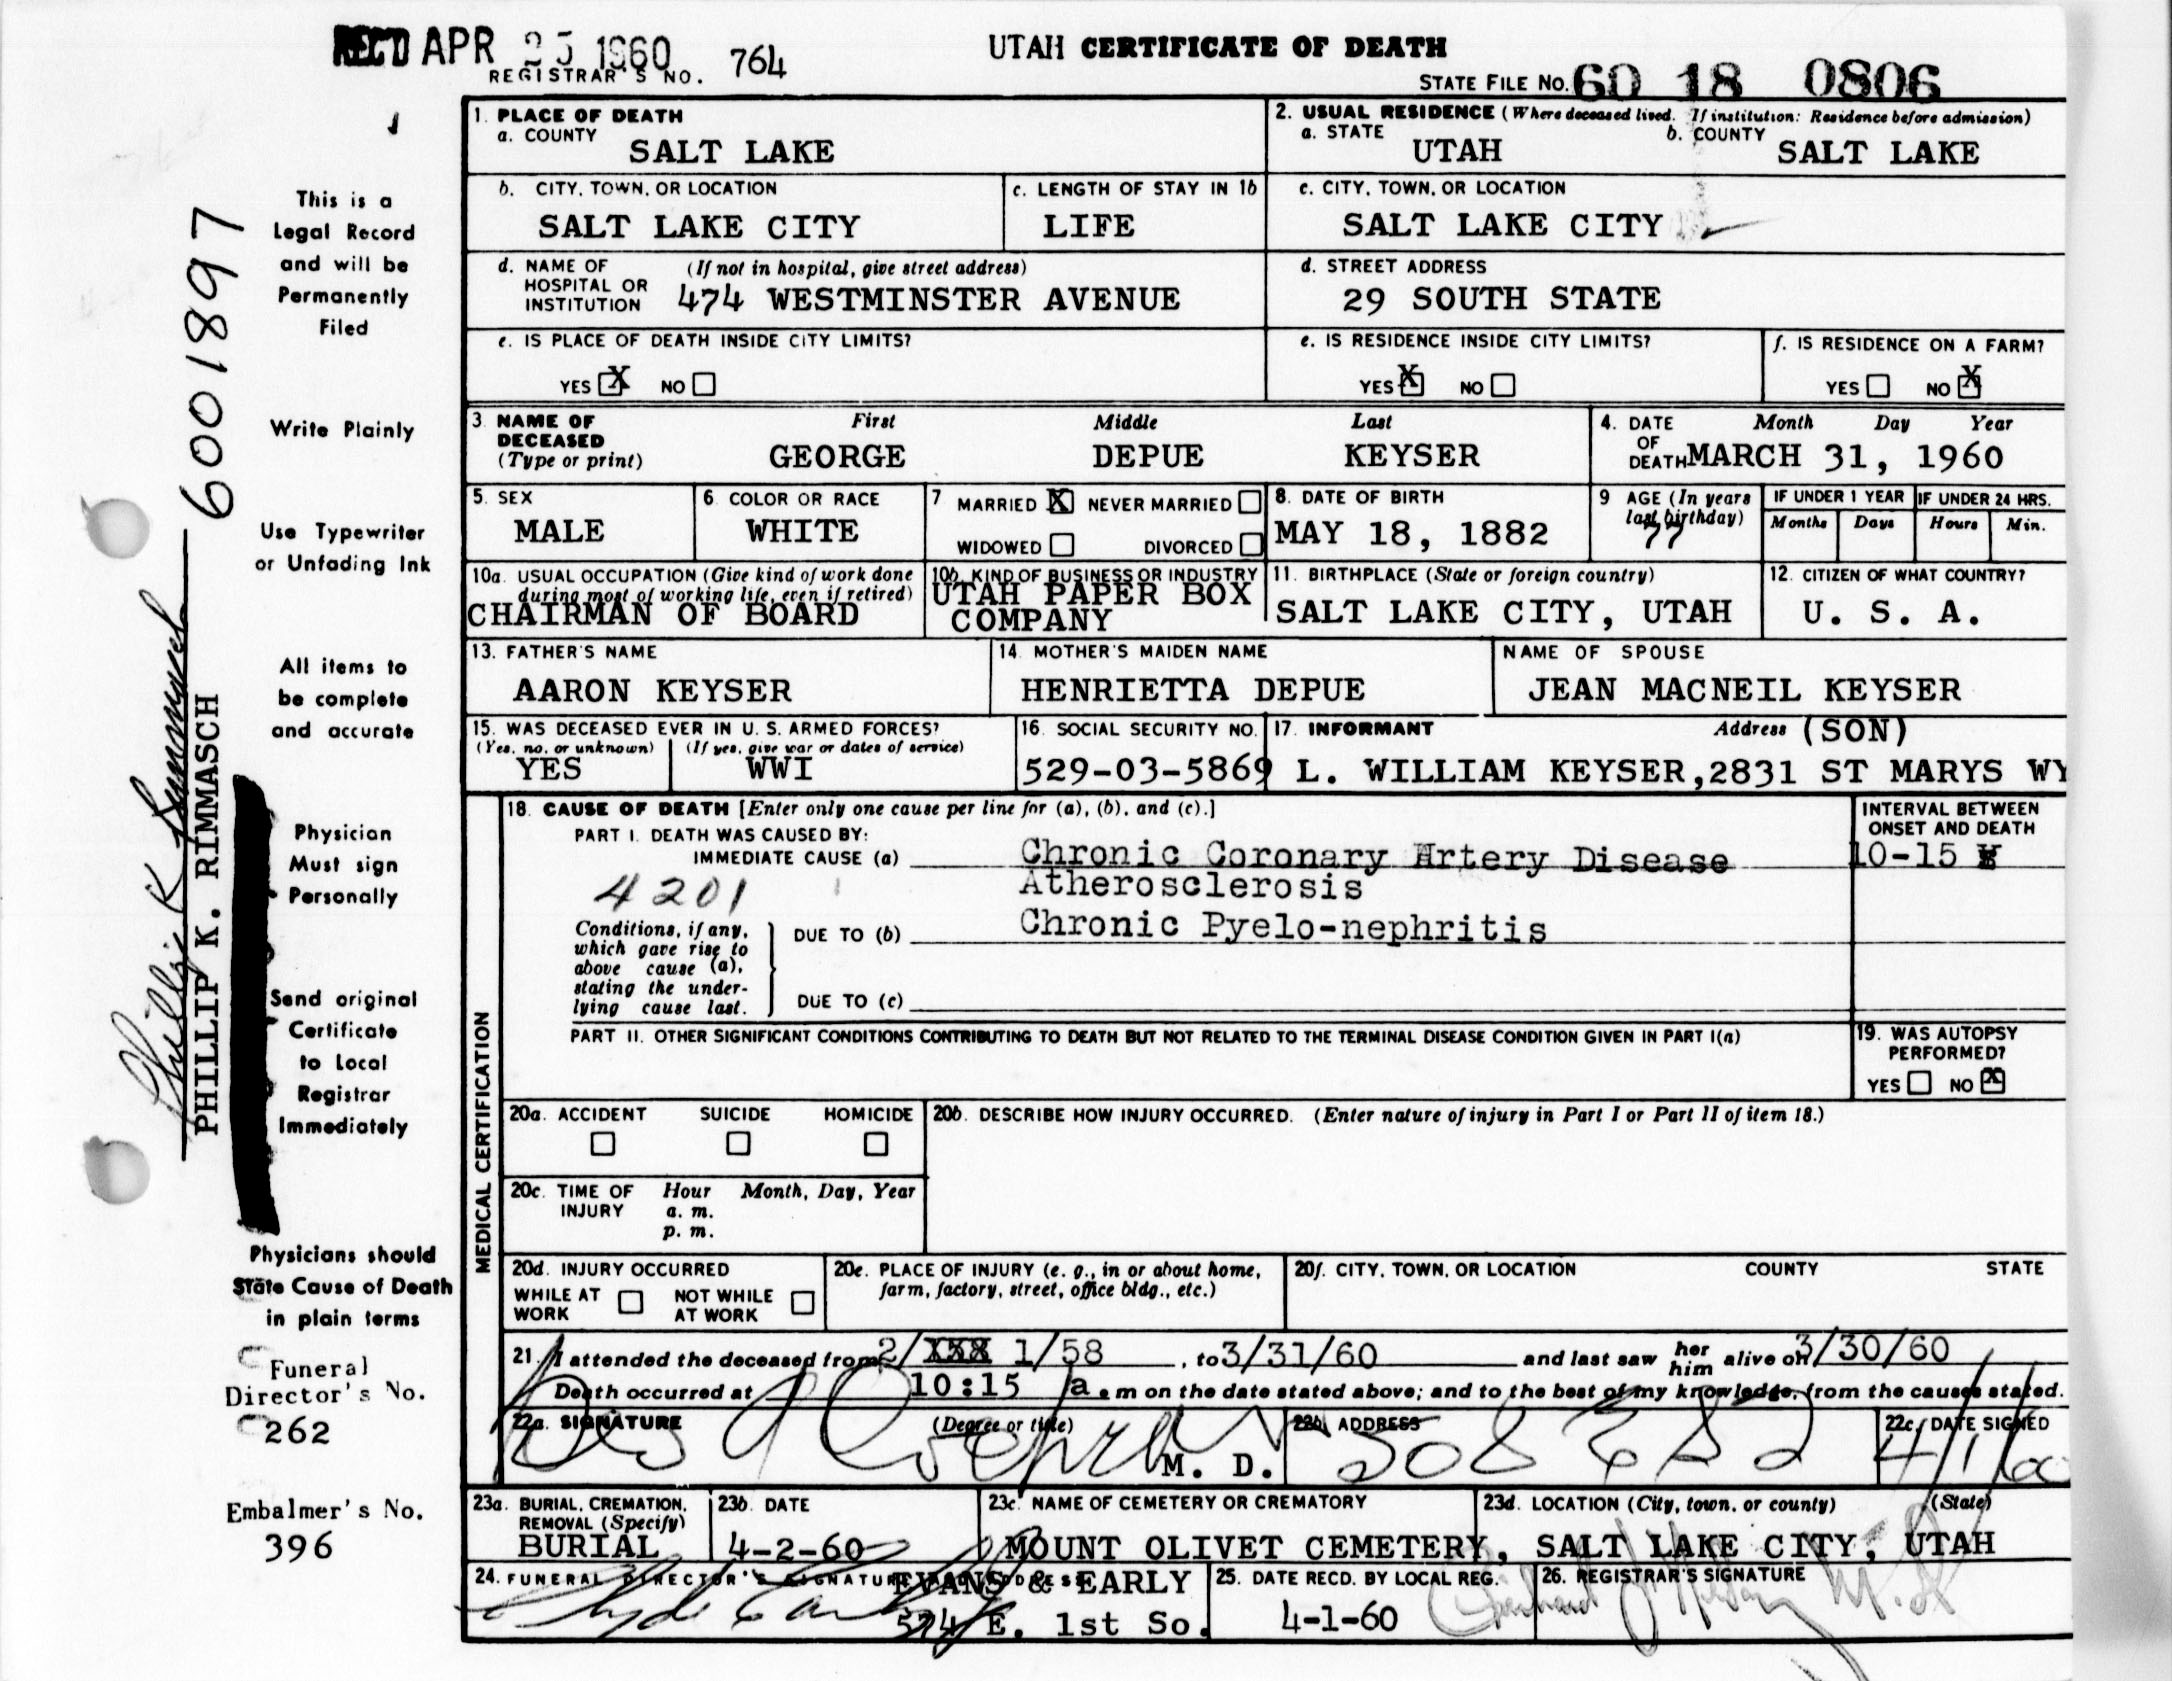 REC'D APR 25 1960
REGISTRAR'S NO. 764
UTAH CERTIFICATE OF DEATH
STATE FILE No. 60 18 0806
1. PLACE OF DEATH
a. COUNTY
SALT LAKE
2. USUAL RESIDENCE (Where deceased lived. If institution: Residence before admission)
a. STATE
UTAH
b. COUNTY
SALT LAKE
b. CITY, TOWN, OR LOCATION
SALT LAKE CITY
c. LENGTH OF STAY IN 1b
LIFE
c. CITY, TOWN, OR LOCATION
SALT LAKE CITY
d. NAME OF HOSPITAL OR INSTITUTION
(If not in hospital, give street address)
474 WESTMINSTER AVENUE
d. STREET ADDRESS
29 SOUTH STATE
e. IS PLACE OF DEATH INSIDE CITY LIMITS?
YES X NO
e. IS RESIDENCE INSIDE CITY LIMITS?
YES X NO
f. IS RESIDENCE ON A FARM?
YES NO X
3. NAME OF DECEASED (Type or print)
First Middle Last
GEORGE DEPUE KEYSER
4. DATE OF DEATH
Month Day Year
MARCH 31, 1960
5. SEX
MALE
6. COLOR OR RACE
WHITE
7 MARRIED X NEVER MARRIED
WIDOWED DIVORCED
8. DATE OF BIRTH
MAY 18, 1882
9 AGE (In years last birthday)
77
IF UNDER 1 YEAR
Months Days
IF UNDER 24 HRS.
Hours Min.
10a. USUAL OCCUPATION (Give kind of work done during most of working life, even if retired)
CHAIRMAN OF BOARD
10b. KIND OF BUSINESS OR INDUSTRY
UTAH PAPER BOX
COMPANY
11. BIRTHPLACE (State or foreign country)
SALT LAKE CITY, UTAH
12. CITIZEN OF WHAT COUNTRY?
U. S. A.
13. FATHER'S NAME
AARON KEYSER
14. MOTHER'S MAIDEN NAME
HENRIETTA DEPUE
NAME OF SPOUSE
JEAN MACNEIL KEYSER
15. WAS DECEASED EVER IN U. S. ARMED FORCES?
(Yes, no, or unknown) (If yes, give war or dates of service)
YES WWI
16. SOCIAL SECURITY NO.
529-03-5869
17. INFORMANT Address (SON)
L. WILLIAM KEYSER, 2831 ST MARYS WY
MEDICAL CERTIFICATION
18. CAUSE OF DEATH [Enter only one cause per line for (a), (b), and (c).]
INTERVAL BETWEEN ONSET AND DEATH
PART I. DEATH WAS CAUSED BY:
IMMEDIATE CAUSE (a) Chronic Coronary Artery Disease
10-15
4201
Atherosclerosis
Conditions, if any, which gave rise to above cause (a), stating the underlying cause last.
DUE TO (b) Chronic Pyelo-nephritis
DUE TO (c)
PART II. OTHER SIGNIFICANT CONDITIONS CONTRIBUTING TO DEATH BUT NOT RELATED TO THE TERMINAL DISEASE CONDITION GIVEN IN PART I(a)
19. WAS AUTOPSY PERFORMED?
YES NO X
20a. ACCIDENT SUICIDE HOMICIDE
20b. DESCRIBE HOW INJURY OCCURRED. (Enter nature of injury in Part I or Part II of item 18.)
20c. TIME OF INJURY Hour Month, Day, Year
a. m.
p. m.
20d. INJURY OCCURRED
WHILE AT WORK NOT WHILE AT WORK
20e. PLACE OF INJURY (e. g., in or about home, farm, factory, street, office bldg., etc.)
20f. CITY, TOWN, OR LOCATION COUNTY STATE
21. I attended the deceased from 2/ 1/58, to 3/31/60 and last saw her him alive on 3/30/60
Death occurred at 10:15 a. m on the date stated above; and to the best of my knowledge, from the causes stated.
22a. SIGNATURE (Degree or title)
M. D.
22b. ADDRESS
508 E
22c. DATE SIGNED
4/1/60
23a. BURIAL, CREMATION, REMOVAL (Specify)
BURIAL
23b. DATE
4-2-60
23c. NAME OF CEMETERY OR CREMATORY
MOUNT OLIVET CEMETERY,
23d. LOCATION (City, town, or county) (State)
SALT LAKE CITY, UTAH
24. FUNERAL DIRECTOR'S SIGNATURE ADDRESS
EVANS & EARLY
574 E. 1st So.
25. DATE RECD. BY LOCAL REG.
4-1-60
26. REGISTRAR'S SIGNATURE
This is a
Legal Record
and will be
Permanently
Filed
Write Plainly
Use Typewriter
or Unfading Ink
All items to
be complete
and accurate
Physician
Must sign
Personally
Send original
Certificate
to Local
Registrar
Immediately
Physicians should
State Cause of Death
in plain terms
Funeral
Director's No.
262
Embalmer's No.
396
6001897
PHILLIP K. RIMMASCH